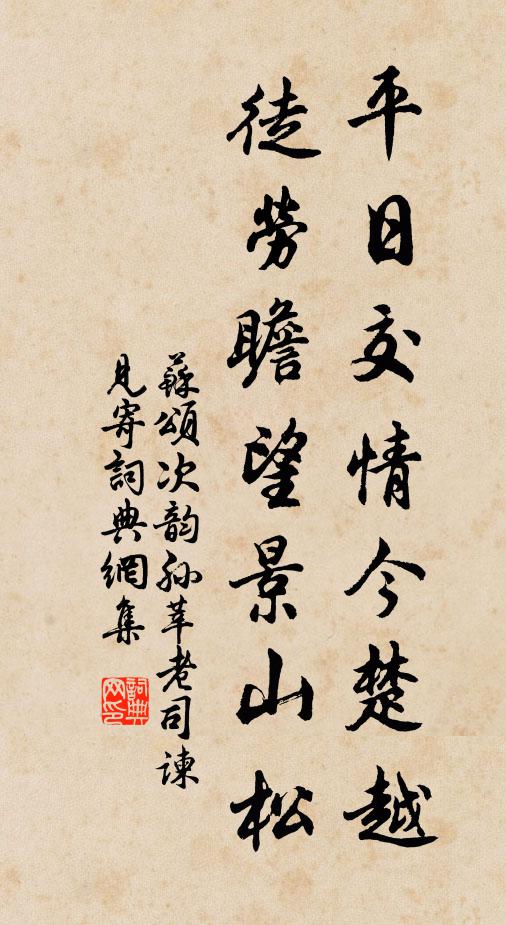 平日交情今楚越
徒勞瞻望景山松
蘇頌次韵孫莘老司諫
見寄詞典網集
詞典
网印